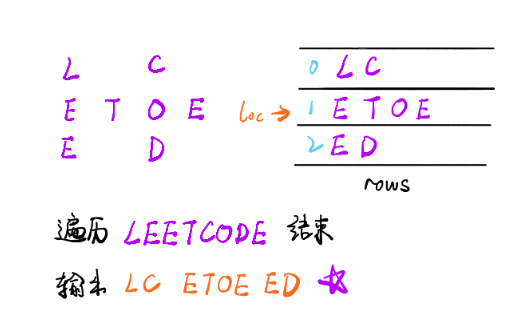 L C
E T O E
E D
0 L C
loc → 1 E T O E
2 E D
rows
遍历 LEETCODE 结束
输出 LC ETOE ED